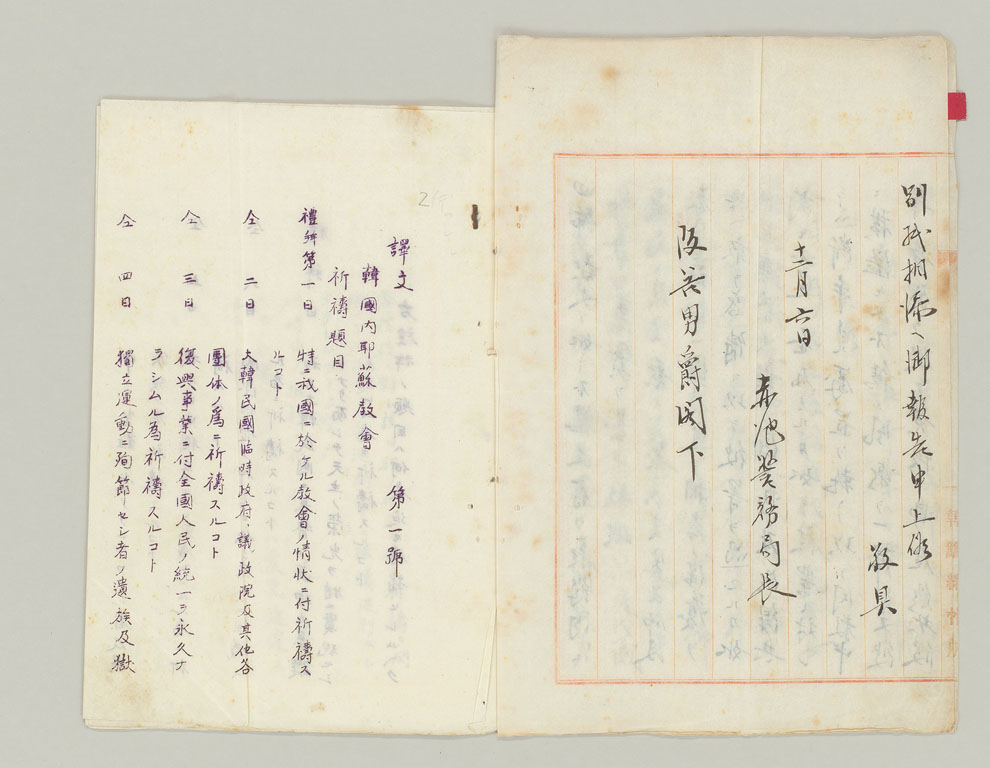 別紙相添ヘ御報告申上候
敬具
十二月六日
赤池警務局長
阪谷男爵閣下
譯文 第一號
韓國内耶蘇教會
祈禱題目
禮拜第一日 特ニ我國ニ於ケル教會ノ情狀ニ付祈禱ス
ルコト
仝 二日 大韓民國臨時政府、議政院及其他各
團体ノ爲ニ祈禱スルコト
仝 三日 復興事業ニ付全國人民ノ統一ヲ永久ナ
ラシムル爲祈禱スルコト
仝 四日 獨立運動ニ殉節セシ者ノ遺族及獄